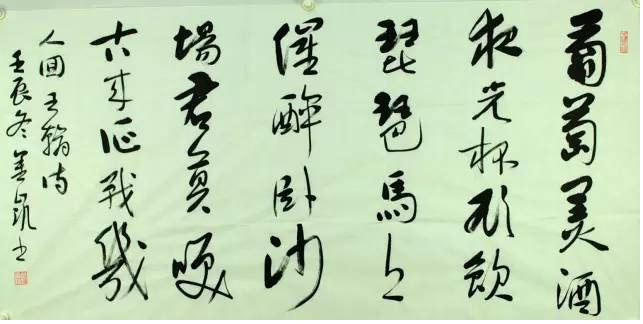 葡萄美酒
夜光杯欲飲
琵琶馬上
催醉卧沙
場君莫咲
古来征戰幾
人回王翰诗
壬辰冬书